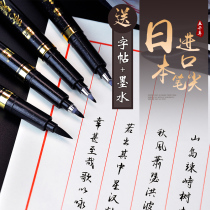 送
字帖+墨水
进口
日本笔尖
山岛竦峙树
秋风萧瑟洪波
若出其中星汉
幸甚至哉歌以咏